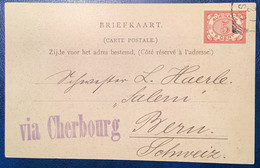 BRIEFKAART.
(CARTE POSTALE.)
Zijde voor het adres bestemd. (Côté réservé à l'adresse.)
Schwester L. Haerle.
„Salem"
via Cherbourg
Bern.
Schweiz.